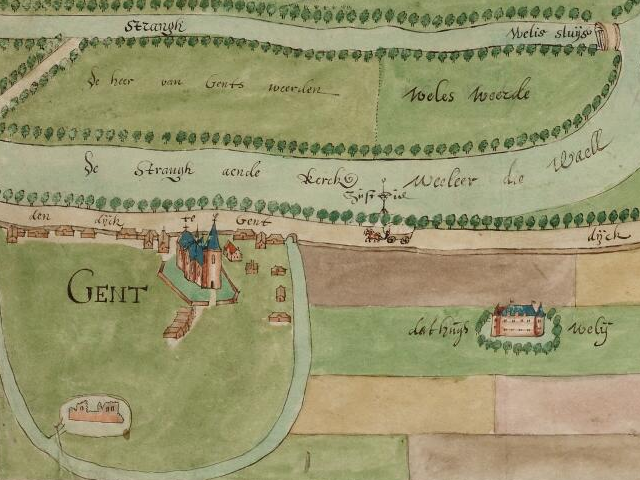 Strangh
Welis sluijs
De heer van Gents weerden
Weles Weerde
De Strangh aende Kerck Weeleer die Waell
den dijck te Gent
dijck
GENT
dat huijs
Welij